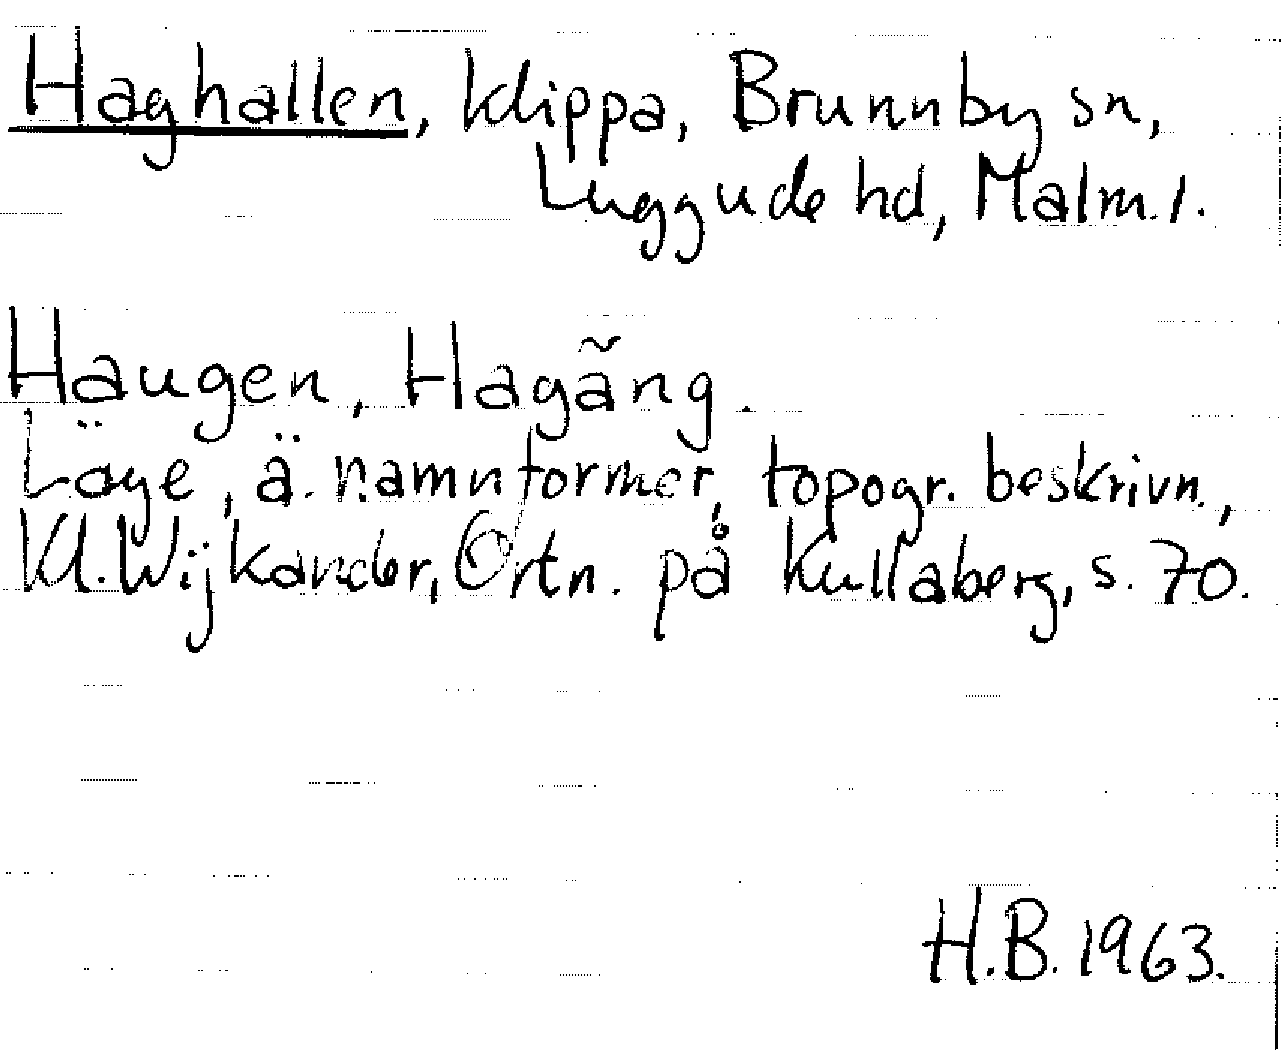 Haghallen, klippa, Brunnby sn,
Luggude hd, Malm.l.
Haugen, Hagãng.
Läge, ä. namnformer, topogr. beskrivn.,
Kl. Wijkander, Ortn. på Kullaberg, s. 70.
H.B. 1963.